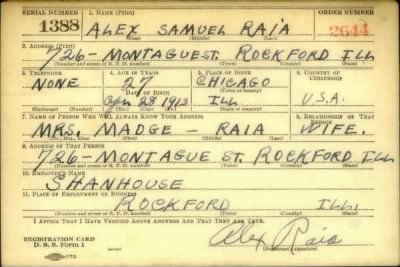 SERIAL NUMBER 1. NAME (Print) ORDER NUMBER
1388 ALEX SAMUEL RAIA 2644
2. ADDRESS (Print)
726 - MONTAGUE ST. ROCKFORD ILL
(Number and street or R. F. D. number) (Town) (County) (State)
3. TELEPHONE 4. AGE IN YEARS 5. PLACE OF BIRTH 6. COUNTRY OF CITIZENSHIP
NONE 27 CHICAGO
DATE OF BIRTH
Apr 28 1913 ILL U.S.A.
(Exchange) (Number) (Mo.) (Day) (Yr.) (State or country)
7. NAME OF PERSON WHO WILL ALWAYS KNOW YOUR ADDRESS 8. RELATIONSHIP OF THAT PERSON
MRS. MADGE - RAIA WIFE.
(Mr., Mrs., Miss) (First) (Middle) (Last)
9. ADDRESS OF THAT PERSON
726 - MONTAGUE ST. ROCKFORD ILL
(Number and street or R. F. D. number) (Town) (County) (State)
10. EMPLOYER'S NAME
SHANHOUSE
11. PLACE OF EMPLOYMENT OR BUSINESS
ROCKFORD ILL.
(Number and street or R. F. D. number) (Town) (County) (State)
I AFFIRM THAT I HAVE VERIFIED ABOVE ANSWERS AND THAT THEY ARE TRUE.
REGISTRATION CARD
D. S. S. Form 1 Alex Raia
(Registrant's signature)